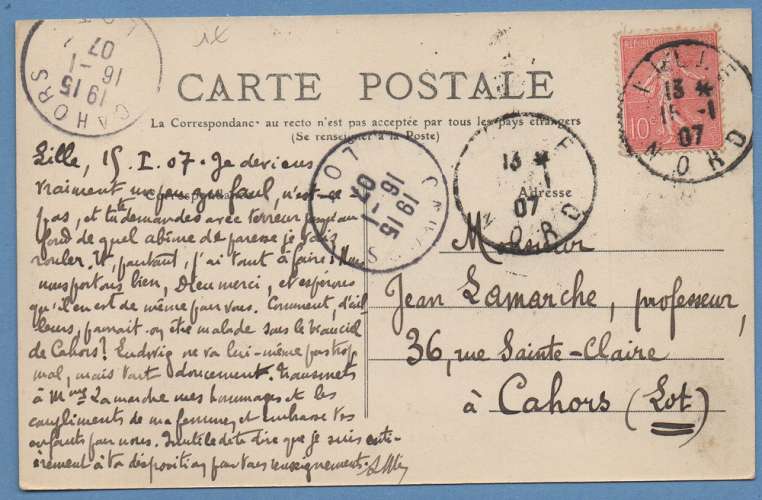 CARTE POSTALE
La Correspondance au recto n'est pas acceptée par tous les pays étrangers
(Se renseigner à la Poste)
Correspondance
Adresse
Lille, 15. I. 07. Je deviens
vraiment un peu n'est-ce
pas, et tu te demandes avec terreur jusqu'au
fond de quel abîme de paresse je vais
rouler. Et, pourtant, j'ai tout à faire! Nous
nous portons bien, Dieu merci, et espérons
qu'il en est de même pour vous. Comment, d'ail
leurs, pourrait-on être malade sous le beau ciel
de Cahors? Ludwig ne va lui-même pas trop
mal, mais tout doucement. Transmets
à Mme Lamarche mes hommages et les
compliments de ma femme, et embrasse tes
enfants pour nous. Inutile de te dire que je suis enti-
èrement à ta disposition pour tous renseignements.
Monsieur
Jean Lamarche, professeur,
36, rue Sainte-Claire
à Cahors (Lot)
CAHORS
19 15
16 -1
07
LOT
19 15
16 -1
07
LILLE
13 *
15 -1
07
NORD
13 *
-1
07
NORD
10c